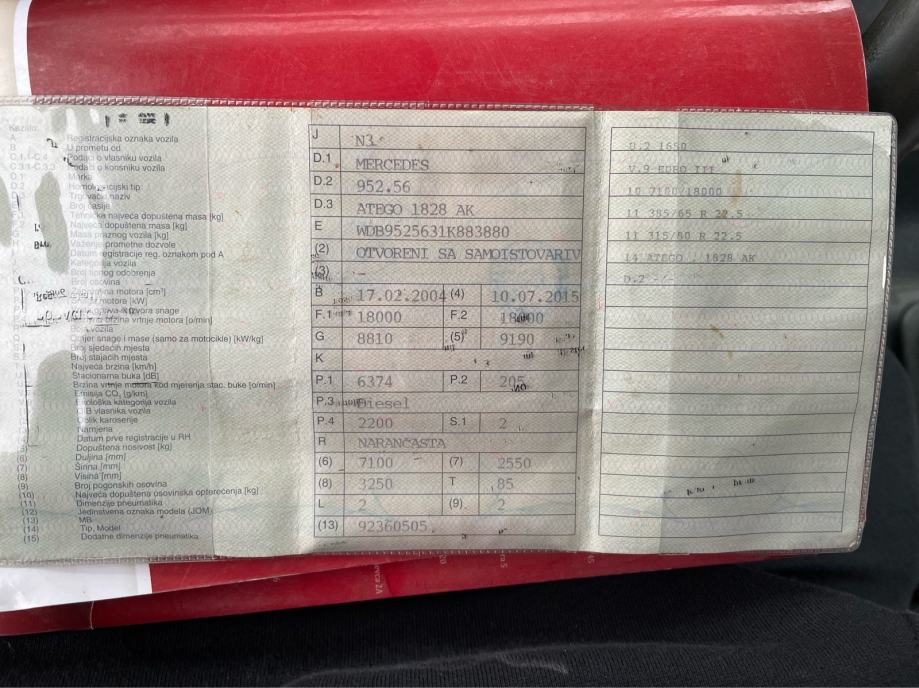 Registracijska oznaka vozila
U prometu od
Podaci o vlasniku vozila
Podaci o korisniku vozila
Marka
Homologacijski tip
Trgovački naziv
Broj šasije
Tehnička najveća dopuštena masa [kg]
Najveća dopuštena masa [kg]
Masa praznog vozila [kg]
Važenje prometne dozvole
Datum registracije reg. oznakom pod A
Kategorija vozila
odobrenja
Broj osovina
motora [cm³]
motora [kW]
izvora snage
brzina vrtnje motora [o/min]
vozila
Omjer snage i mase (samo za motocikle) [kW/kg]
Broj sjedećih mjesta
Broj stajaćih mjesta
Najveća brzina [km/h]
Stacionarna buka [dB]
Brzina vrtnje motora kod mjerenja stac. buke [o/min]
Emisija CO₂ [g/km]
Ekološka kategorija vozila
OIB vlasnika vozila
Oblik karoserije
Namjena
Datum prve registracije u RH
Dopuštena nosivost [kg]
(6) Duljina [mm]
(7) Širina [mm]
(8) Visina [mm]
(9) Broj pogonskih osovina
(10) Najveća dopuštena osovinska opterećenja [kg]
(11) Dimenzije pneumatika
(12) Jedinstvena oznaka modela (JOM)
(13) MB
(14) Tip, Model
(15) Dodatne dimenzije pneumatika
J N3
D.1 MERCEDES
D.2 952.56
D.3 ATEGO 1828 AK
E WDB9525631K883880
(2) OTVORENI SA SAMOISTOVARIV
(3) –
B 17.02.2004 (4) 10.07.2015
F.1 18000 F.2 18000
G 8810 (5) 9190
K
P.1 6374 P.2 205
P.3 Diesel
P.4 2200 S.1 2
R NARANČASTA
(6) 7100 (7) 2550
(8) 3250 T 85
L 2 (9) 2
(13) 92360505
U.2 1650
V.9 EURO III
10 7100/18000
11 385/65 R 22.5
11 315/80 R 22.5
14 ATEGO , 1828 AK
D.2 -